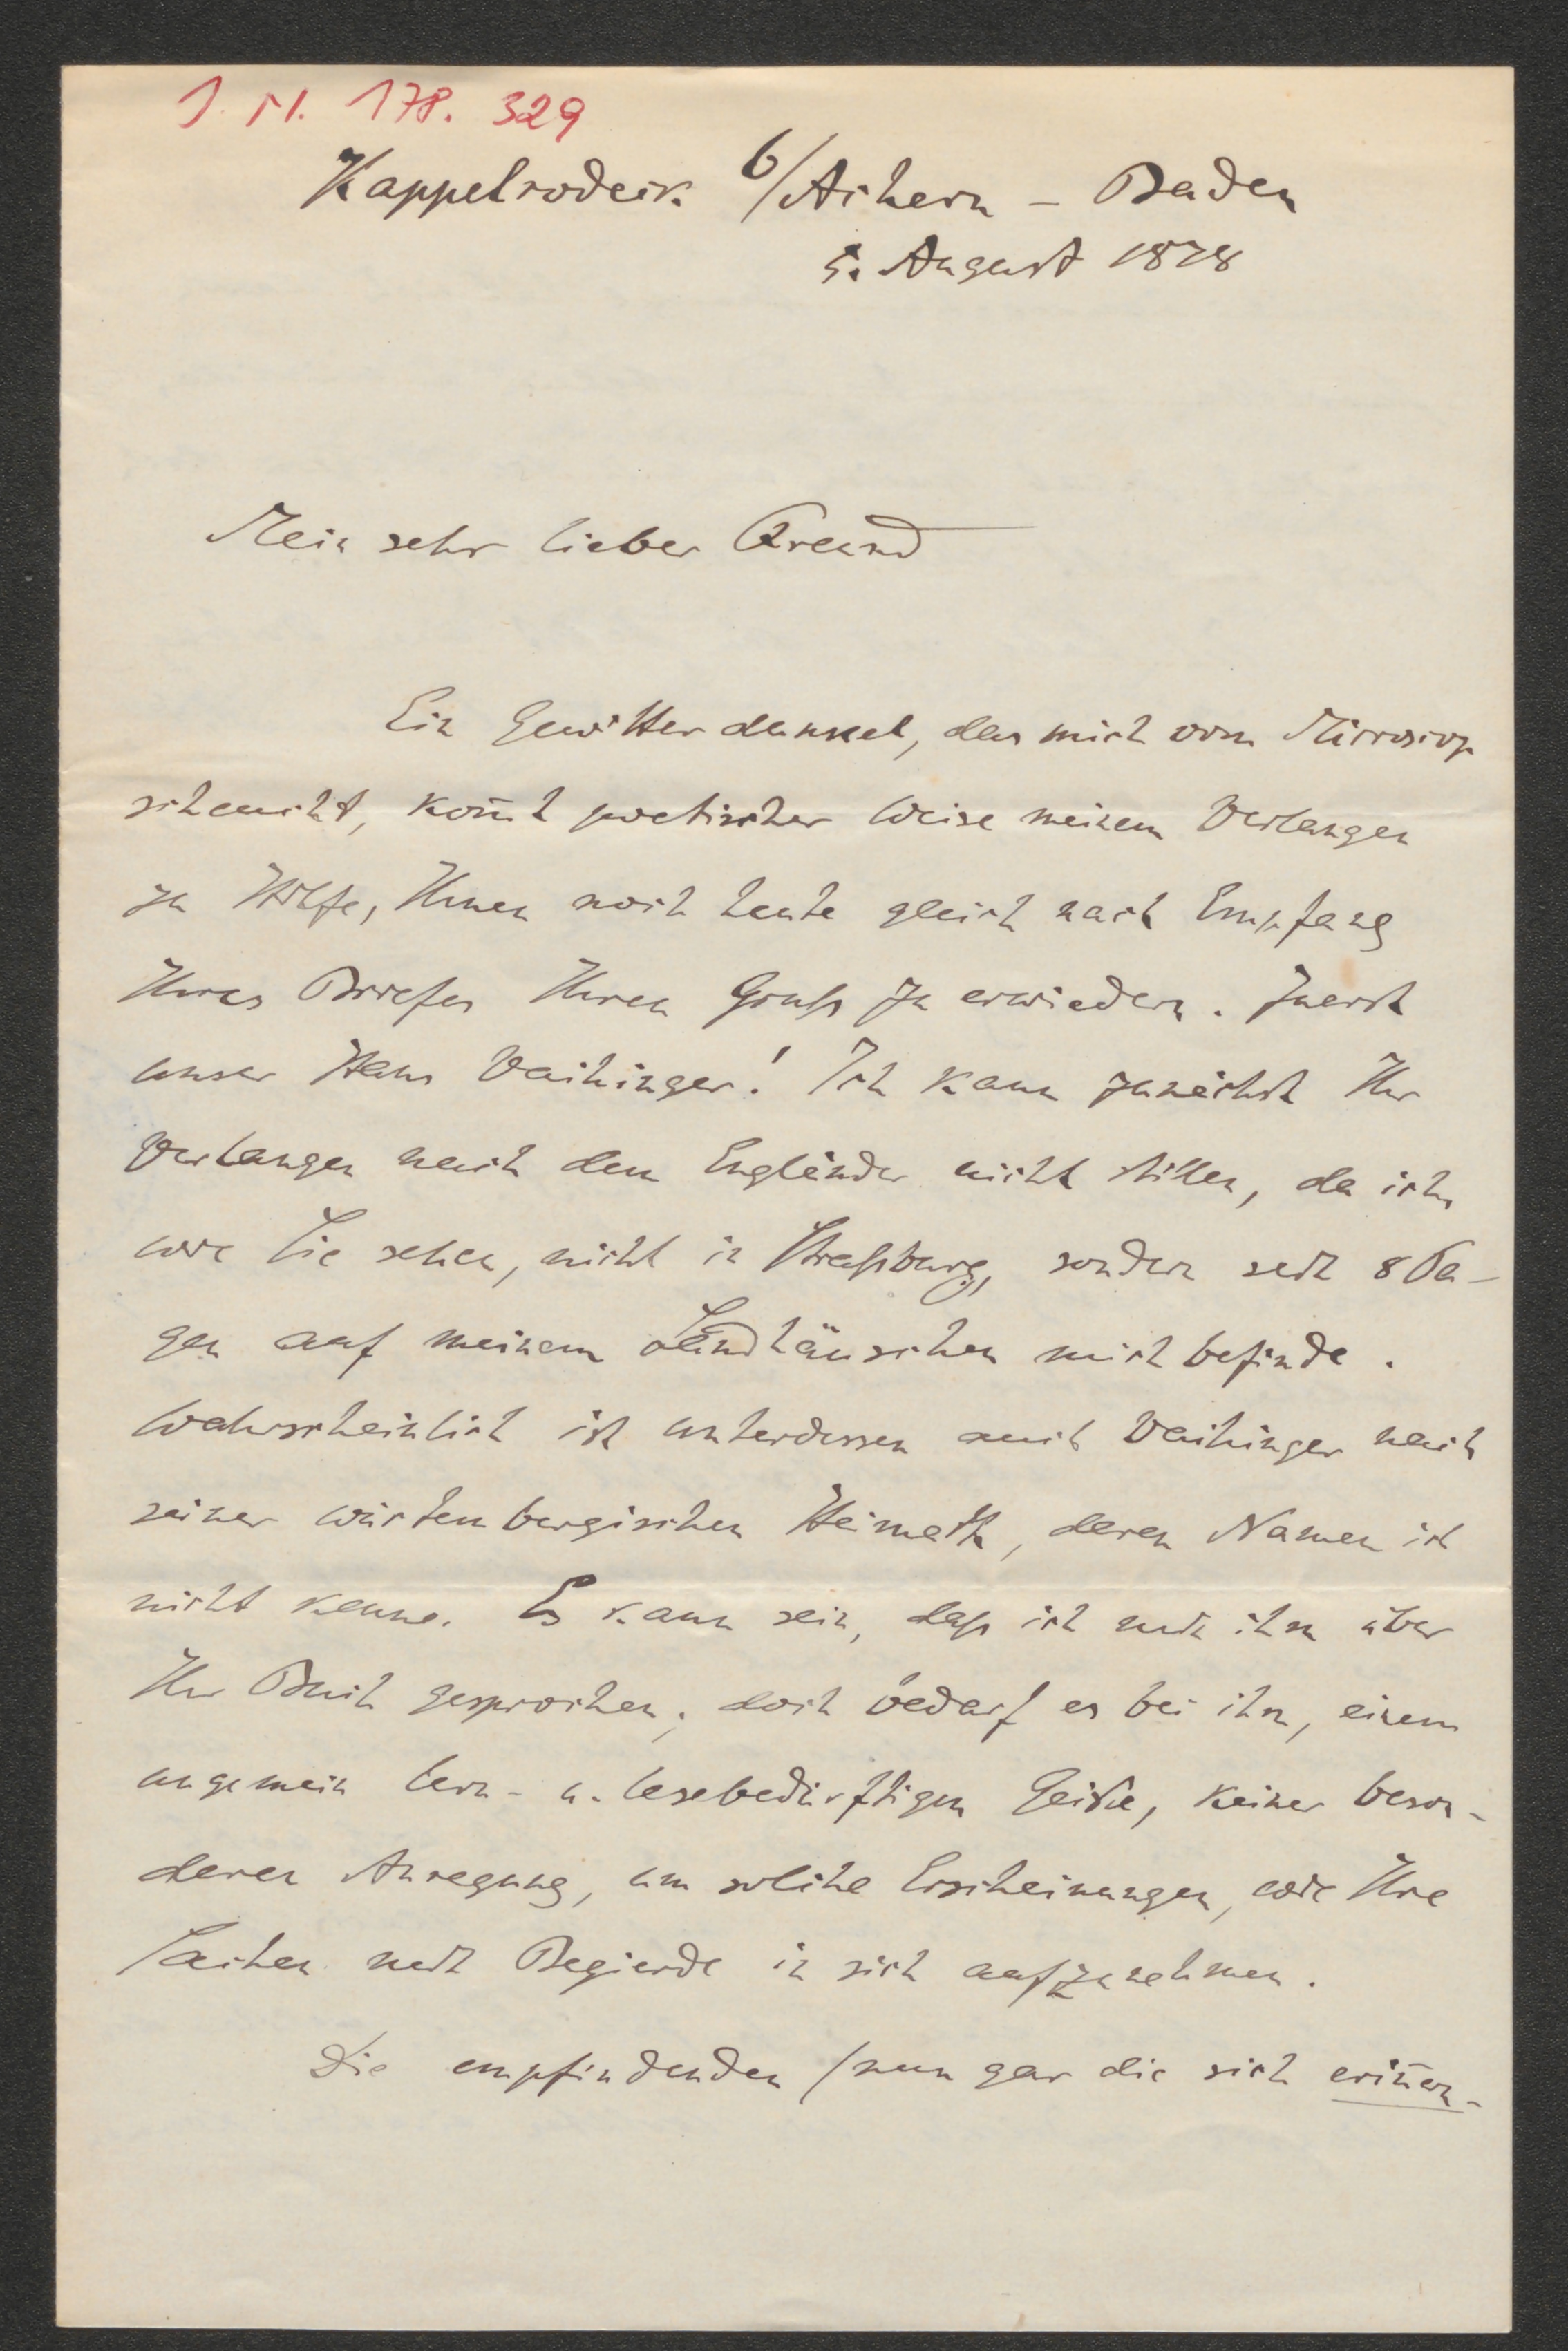 I. N. 178. 329
Kappelrodeck b/Achern – Baden
5. August 1878
Mein sehr lieber Freund
Ein Gewitterdunkel, das mich vom Microscop
scheucht, kom̄t poetischer Weise meinem Verlangen
zu Hilfe, Ihnen noch heute gleich nach Empfang
Ihres Briefes Ihren Gruß zu erwiedern. Zuerst
unser Hans Vaihinger! Ich kann zunächst Ihr
Verlangen nach dem Engländer nicht stillen, da ich,
wie Sie sehen, nicht in Straßburg, sondern seit 8 Ta-
gen auf meinem Landhäuschen mich befinde.
Wahrscheinlich ist unterdessen auch Vaihinger nach
seiner würtembergischen Heimath, deren Namen ich
nicht kenne. Es kann sein, daß ich mit ihm über
Ihr Buch gesprochen; doch bedarf es bei ihm, einem
ungemein lern- u. lesebedürftigen Geiste, keiner beson-
deren Anregung, um solche Erscheinungen, wie Ihre
Sachen mit Begierde in sich aufzunehmen.
Die empfindenden /nun gar die sich erin̄ern-